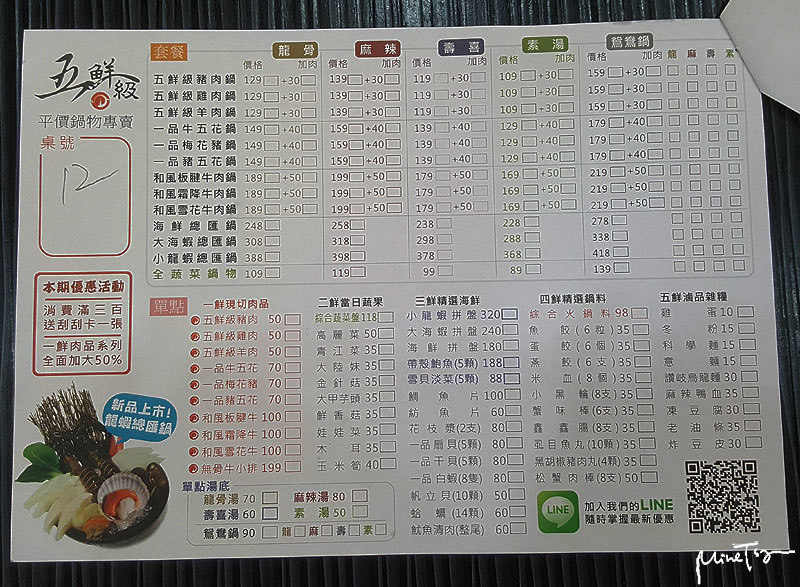 五鮮級
平價鍋物專賣
桌號
12
套餐 龍骨 麻辣 壽喜 素湯 鴛鴦鍋
價格 加肉 價格 加肉 價格 加肉 價格 加肉 價格 加肉 龍 麻 壽 素
五鮮級豬肉鍋 129 +30 139 +30 119 +30 109 +30 159 +30
五鮮級雞肉鍋 129 +30 139 +30 119 +30 109 +30 159 +30
五鮮級羊肉鍋 129 +30 139 +30 119 +30 109 +30 159 +30
一品牛五花鍋 149 +40 159 +40 139 +40 129 +40 179 +40
一品梅花豬鍋 149 +40 159 +40 139 +40 129 +40 179 +40
一品豬五花鍋 149 +40 159 +40 139 +40 129 +40 179 +40
和風板腱牛肉鍋 189 +50 199 +50 179 +50 169 +50 219 +50
和風霜降牛肉鍋 189 +50 199 +50 179 +50 169 +50 219 +50
和風雪花牛肉鍋 189 +50 199 +50 179 +50 169 +50 219 +50
海鮮總匯鍋 248 258 238 228 278
大海蝦總匯鍋 308 318 298 288 338
小龍蝦總匯鍋 388 398 378 368 418
全蔬菜鍋物 109 119 99 89 139
本期優惠活動
消費滿三百
送刮刮卡一張
一鮮肉品系列
全面加大50%
新品上市!
龍蝦總匯鍋
單點
一鮮現切肉品
五鮮級豬肉 50
五鮮級雞肉 50
五鮮級羊肉 50
一品牛五花 70
一品梅花豬 70
一品豬五花 70
和風板腱牛 100
和風霜降牛 100
和風雪花牛 100
無骨牛小排 199
二鮮當日蔬果
綜合蔬菜盤 118
高麗菜 50
青江菜 35
大陸妹 35
金針菇 35
大甲芋頭 35
鮮香菇 35
娃娃菜 35
木耳 35
玉米筍 40
三鮮精選海鮮
小龍蝦拼盤 320
大海蝦拼盤 240
海鮮拼盤 180
帶殼鮑魚(5顆) 188
雪貝淡菜(5顆) 88
鯛魚片 100
魴魚片 60
花枝漿(2支) 80
一品扇貝(5顆) 80
一品干貝(5顆) 80
一品白蝦(8隻) 80
帆立貝(10顆) 50
蛤蠣(14顆) 60
魷魚清肉(整尾) 60
四鮮精選鍋料
綜合火鍋料 98
魚餃(6粒) 35
蛋餃(6個) 35
燕餃(6支) 35
米血(8個) 35
小黑輪(8支) 35
蟹味棒(6支) 35
鑫鑫腸(8支) 35
虱目魚丸(10顆) 35
黑胡椒豬肉丸(4顆) 35
松蟹肉棒(8支) 50
五鮮滷品雜糧
雞蛋 10
冬粉 15
科學麵 15
意麵 15
讚岐烏龍麵 30
麻辣鴨血 35
凍豆腐 30
老油條 35
炸豆皮 30
單點湯底
龍骨湯 70 麻辣湯 80
壽喜湯 60 素湯 50
鴛鴦鍋 90 龍 麻 壽 素
LINE
加入我們的LINE
隨時掌握最新優惠